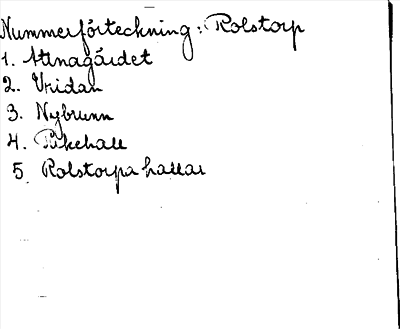 Nummerförteckning: Rolstorp
1. Attnagärdet
2. Vridan
3. Nybrunn
4. Pikehall
5. Rolstorpa hallar